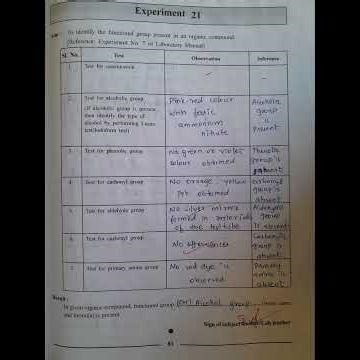 Experiment 21
To identify the functional group present in an organic compound.
(Reference: Experiment No. 7 of Laboratory Manual)
Sl. No.
Test
Observation
Inference
1.
Test for unsaturation
–
–
2.
Test for alcoholic group
(If alcoholic group is present
then identify the type of
alcohol by performing Lucas
test/iodoform test)
Pink red colour
with
ammonium
nitrate
Alcoholic
group
is
present
3.
Test for phenolic group
No green or violet
colour obtained
Phenolic
group is
absent
4.
Test for carbonyl group
No orange-yellow
ppt obtained
Carbonyl
group is
absent
5.
Test for aldehydic group
No silver mirror
formed in
of the test tube
group
is absent
6.
Test for carboxyl group
No effervescence
Carboxylic
group is
absent
7.
Test for primary amino group
No red dye is
observed
Primary
amine is
absent
Result :
In given organic compound, functional group (OH) Alcohol group (write name
and formula) is present.
Sign of subject teacher/Lab teacher
81